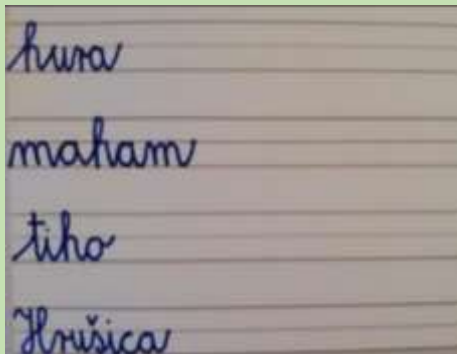 hura
maham
tiho
Hrušica